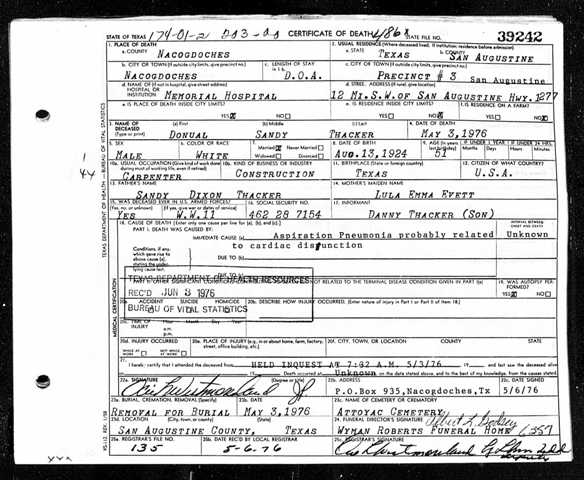 STATE OF TEXAS 174-01-2 CERTIFICATE OF DEATH STATE FILE NO. 39242
1. PLACE OF DEATH 2. USUAL RESIDENCE (Where deceased lived. If institution: residence before admission)
a. COUNTY NACOGDOCHES a. STATE TEXAS b. COUNTY SAN AUGUSTINE
b. CITY OR TOWN (If outside city limits, give precinct no.) c. LENGTH OF STAY c. CITY OR TOWN (If outside city limits, give precinct no.)
NACOGDOCHES D.O.A. PRECINCT # 3 San Augustine
d. NAME OF (If not in hospital, give street address) d. STREET ADDRESS (If rural, give location)
HOSPITAL OR INSTITUTION MEMORIAL HOSPITAL 12 MI.S.W.OF SAN AUGUSTINE HWY.1277
e. IS PLACE OF DEATH INSIDE CITY LIMITS? e. IS RESIDENCE INSIDE CITY LIMITS? f. IS RESIDENCE ON A FARM?
YES NO YES NO YES NO
3. NAME OF DECEASED (Type or print) (a) First (b) Middle (c) Last 4. DATE OF DEATH
DONUAL SANDY THACKER MAY 3,1976
5. SEX 6. COLOR OR RACE 7. Married Never Married Widowed Divorced 8. DATE OF BIRTH 9. AGE IF UNDER 1 YEAR IF UNDER 24 HRS.
MALE WHITE AUG.13,1924 51
10a. USUAL OCCUPATION (Give kind of work done during most of working life, even if retired) 10b. KIND OF BUSINESS OR INDUSTRY 11. BIRTHPLACE (State or foreign country) 12. CITIZEN OF WHAT COUNTRY?
CARPENTER CONSTRUCTION TEXAS U.S.A.
13. FATHER'S NAME 14. MOTHER'S MAIDEN NAME
SANDY DIXON THACKER LULA EMMA EVETT
15. WAS DECEASED EVER IN U.S. ARMED FORCES? 16. SOCIAL SECURITY NO. 17. INFORMANT
YES W.W.11 462 28 7154 DANNY THACKER (SON)
18. CAUSE OF DEATH (Enter only one cause per line for (a), (b), and (c).)
PART I. DEATH WAS CAUSED BY:
IMMEDIATE CAUSE (a) Aspiration Pneumonia probably related Unknown
to cardiac disfunction
Conditions, if any, which gave rise to above cause (a), stating the underlying cause last. DUE TO (b)
TEXAS DEPARTMENT OF HEALTH RESOURCES
REC'D JUN 3 1976
BUREAU OF VITAL STATISTICS
19. WAS AUTOPSY PERFORMED? YES NO
20a. ACCIDENT SUICIDE HOMICIDE 20b. DESCRIBE HOW INJURY OCCURRED. (Enter nature of injury in Part I or Part II of item 18.)
TIME OF INJURY a.m. p.m.
20d. INJURY OCCURRED WHILE AT WORK NOT WHILE AT WORK 20e. PLACE OF INJURY (e.g., in or about home, farm, factory, street, office building, etc.) 20f. CITY, TOWN, OR LOCATION COUNTY STATE
21. I hereby certify that I attended the deceased HELD INQUEST AT 5/3/76 and last saw the deceased alive
Death occurred at Unknown m. on the date stated above, and to the best of my knowledge, from the causes stated.
22a. SIGNATURE (Degree or title) 22b. ADDRESS 22c. DATE SIGNED
P.O.Box 935,Nacogdoches,Tx 5/6/76
23a. BURIAL, CREMATION, REMOVAL (Specify) 23b. DATE 23c. NAME OF CEMETERY OR CREMATORY
REMOVAL FOR BURIAL MAY 3,1976 ATTOYAC CEMETERY
23d. LOCATION (City, town, or county) (State) 24. FUNERAL DIRECTOR'S SIGNATURE
SAN AUGUSTINE COUNTY, TEXAS WYMAN ROBERTS FUNERAL HOME
25a. REGISTRAR'S FILE NO. 25b. DATE REC'D BY LOCAL REGISTRAR 25c. REGISTRAR'S SIGNATURE
135 5-6-76
TEXAS DEPARTMENT OF HEALTH — BUREAU OF VITAL STATISTICS
MEDICAL CERTIFICATION